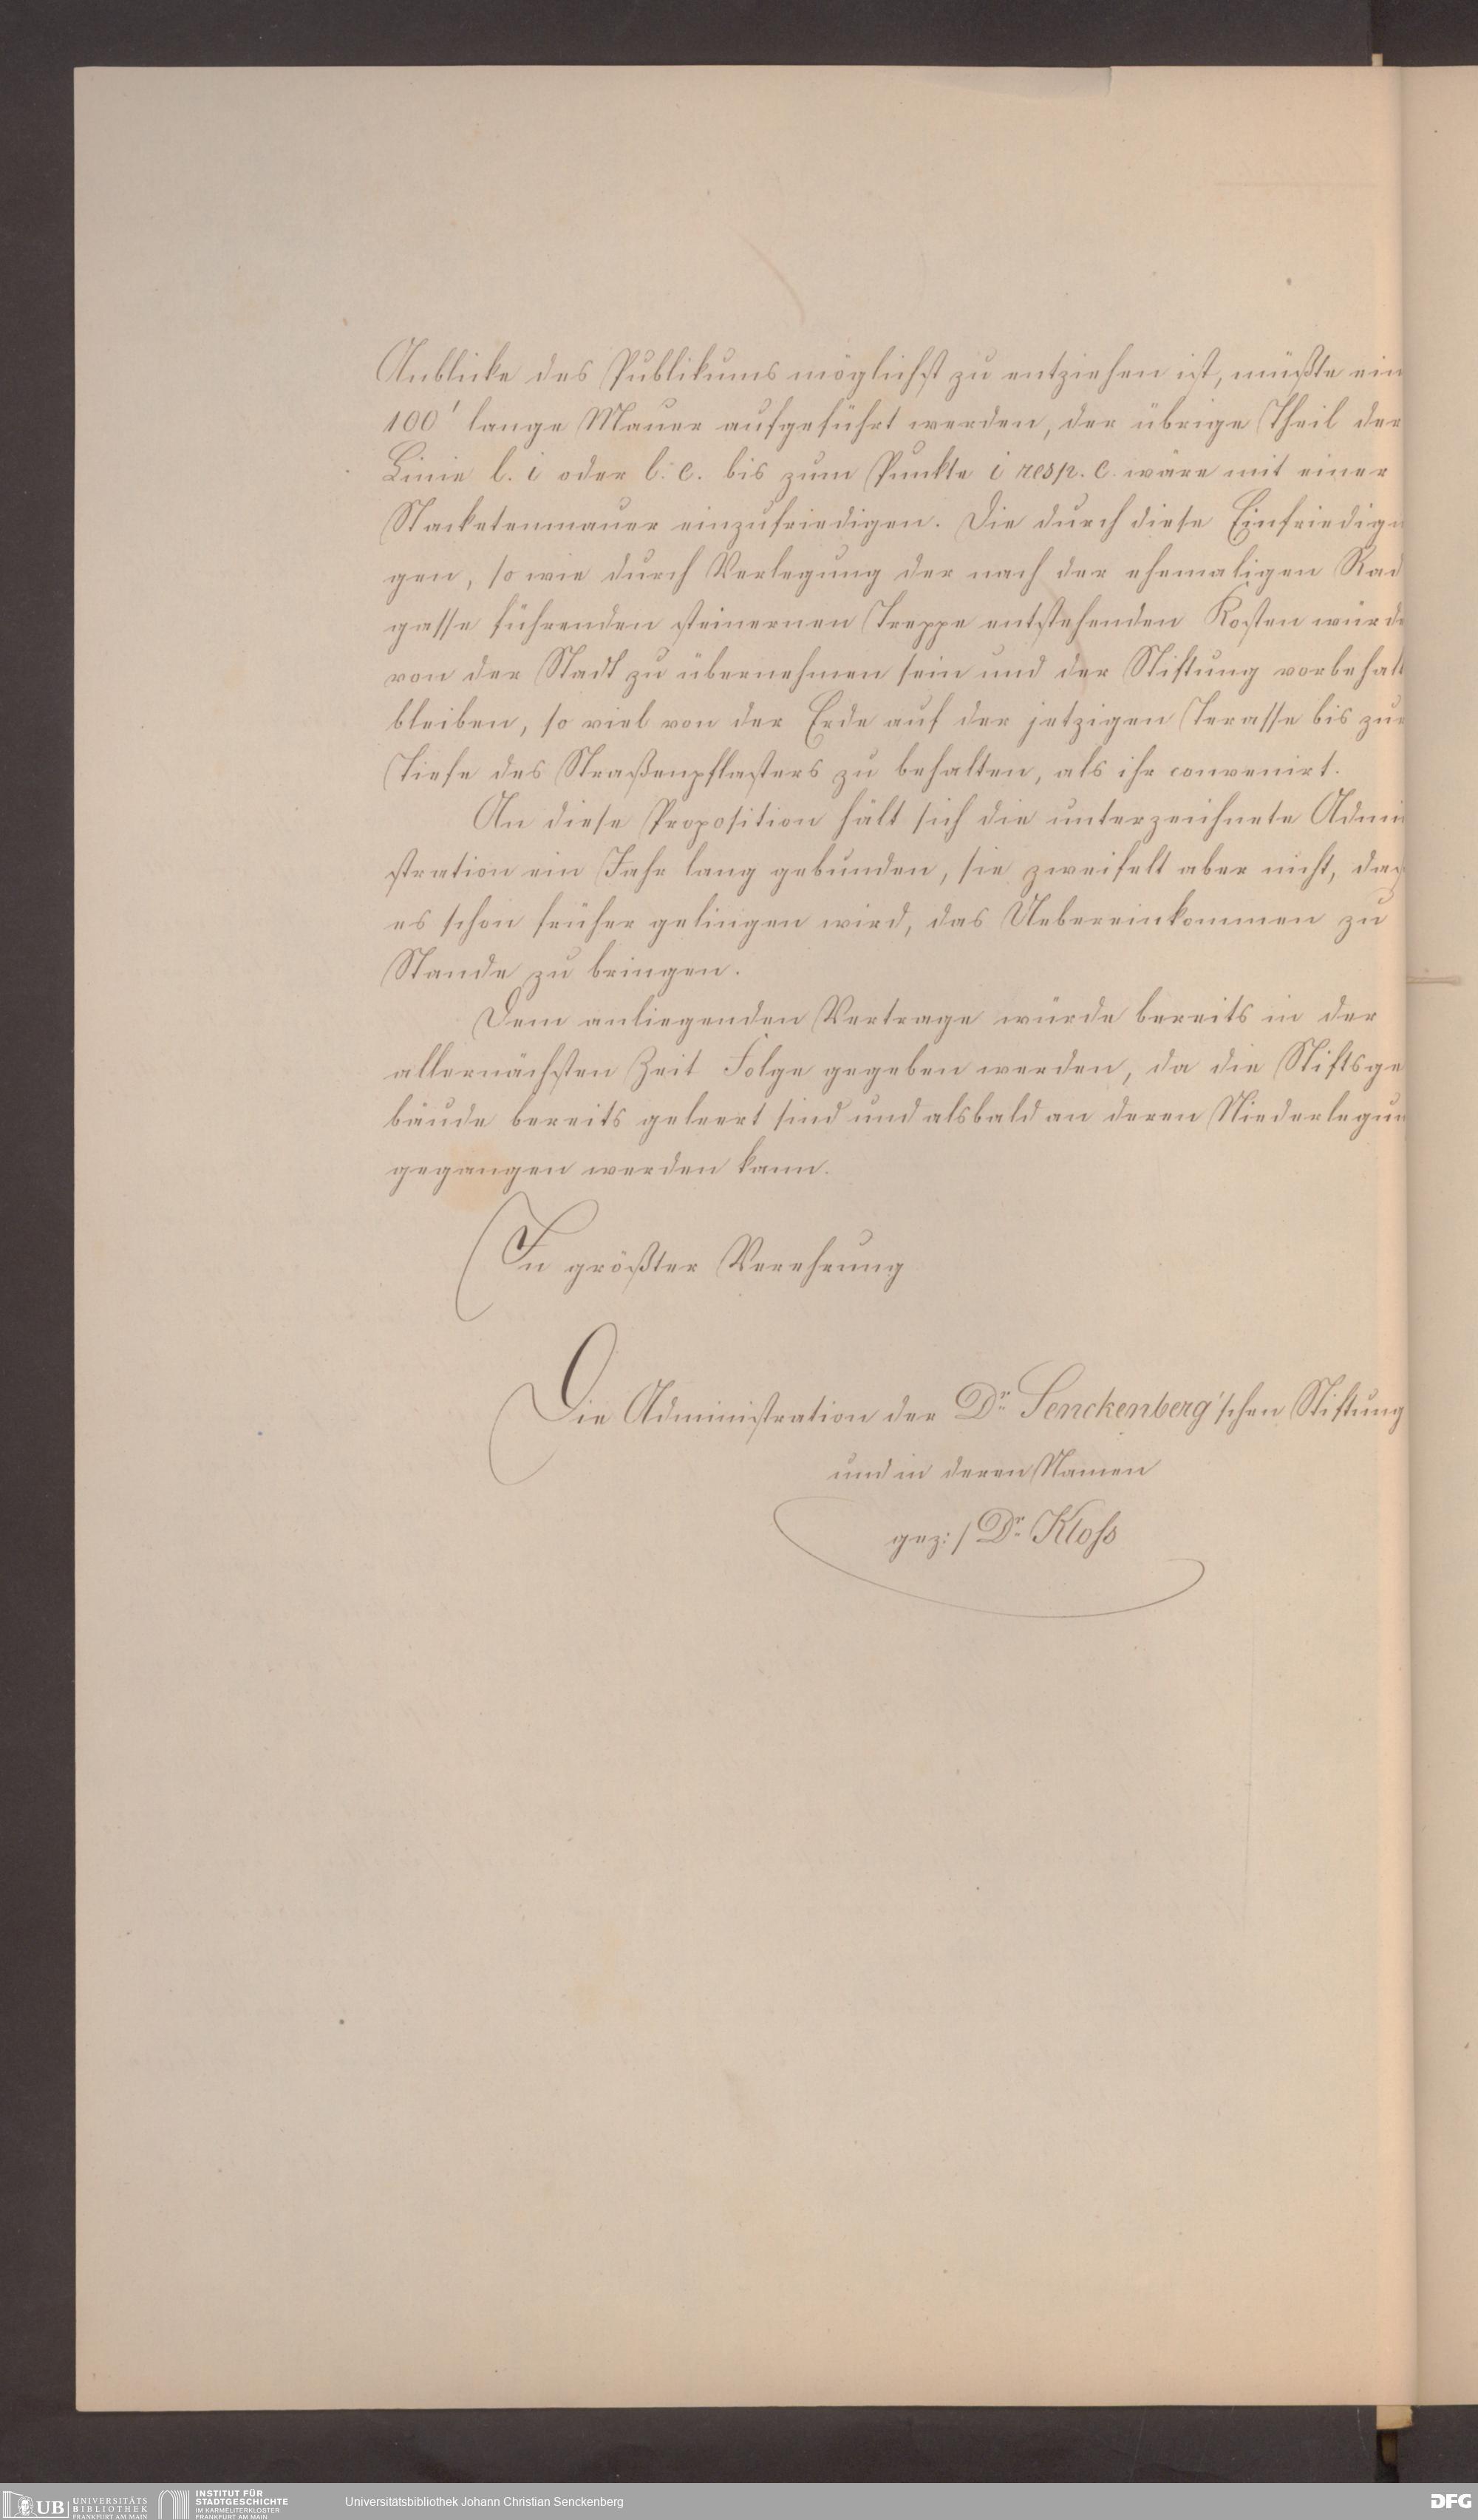 Anblicke des Publikums möglichst zu entziehen ist, müßte ein
100' lange Mauer aufgeführt werden, der übrige Theil der
Linie l. i oder l. c. bis zum Punkte i resp. c. wäre mit einer
Stacketenmauer einzufriedigen. Die durch diese Einfriedigu
gen, so wie durch Verlegung der nach der ehemaligen Rad
gasse führenden steinernen Treppe entstehenden Kosten würde
von der Stadt zu übernehmen sein und der Stiftung vorbehalt
bleiben, so viel von der Erde auf der jetzigen Terasse bis zur
Tiefe des Straßenpflasters zu behalten, als ihr convenirt.
An diese Proposition hält sich die unterzeichnete Admi
stration ein Jahr lang gebunden, sie zweifelt aber nicht, daß
es schon früher gelingen wird, das Uebereinkommen zu
Stande zu bringen.
Dem anliegenden Vertrage würde bereits in der
allernächsten Zeit Folge gegeben werden, da die Stiftsge
bäude bereits geleert sind und alsbald an deren Niederlegun
gegangen werden kann.
In größter Verehrung
Die Administration der Dr. Senckenberg'schen Stiftung
und in deren Namen
gez:/ Dr. Kloss
UB UNIVERSITÄTS BIBLIOTHEK FRANKFURT AM MAIN
INSTITUT FÜR STADTGESCHICHTE IM KARMELITERKLOSTER FRANKFURT AM MAIN
Universitätsbibliothek Johann Christian Senckenberg
DFG